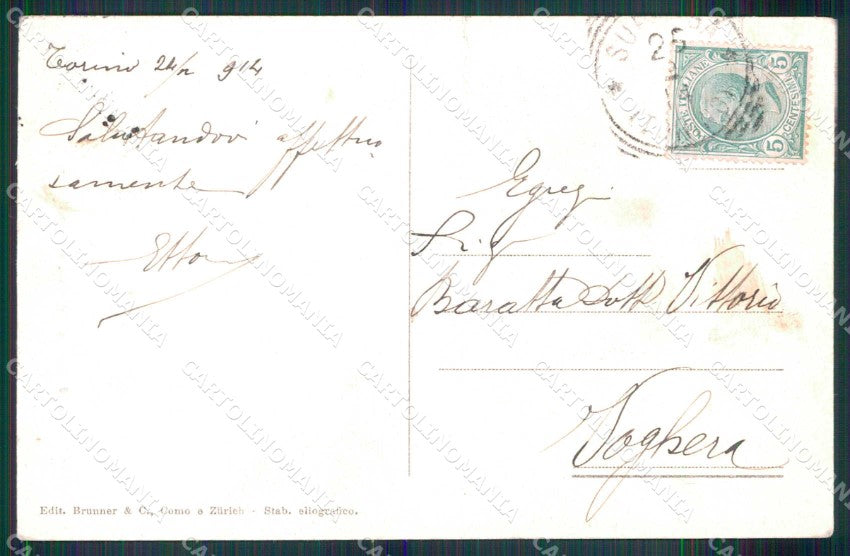 Torino 24/2 914
Salutandovi affettuo
samente
Ettore
Egregi
Sig
Baratta Dott. Vittorio
Voghera
Edit. Brunner & C., Como e Zürich - Stab. eliografico.
POSTE ITALIANE
5 CENTESIMI 5
25
CARTOLINOMANIA